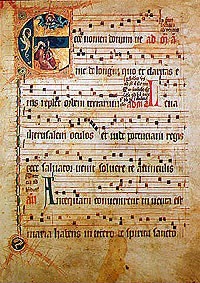 Ecce nomen domini ve
nit de longinquo et claritas e
ius replet orbem terrarum Leua
iherusalem oculos et uide potenciam regis
ecce saluator uenit soluere te a uinculis
Antequam conuenirent inuenta est
maria habens in utero de spiritu sancto